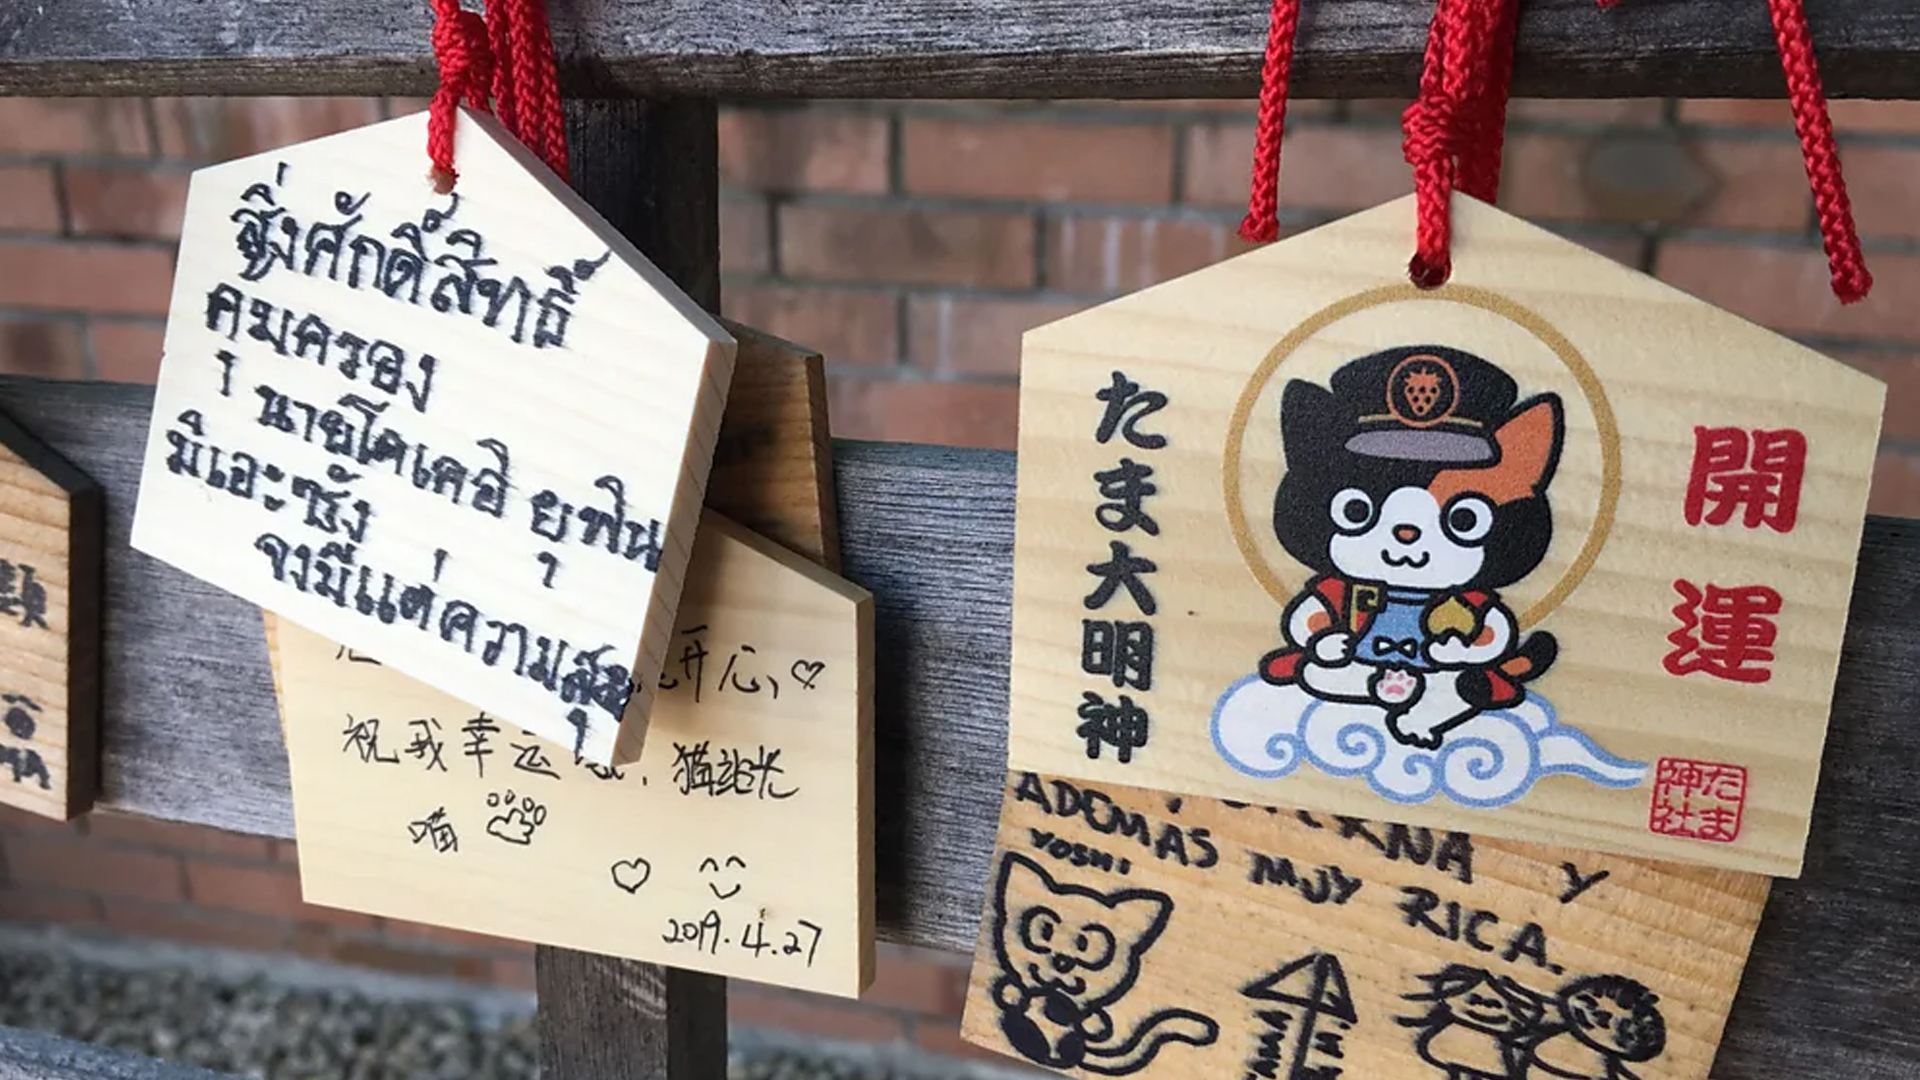 สิ่งศักดิ์สิทธิ์
คุมครอง
นายโคเคอิ ยุฟิน
มิเอะซัง
จงมีแต่ความสุข
开心,♡
祝我幸运
猫站长
喵
2019.4.27
たま大明神
開運
たま
神社
ADEMAS MUY RICA.
Y
YOSHI